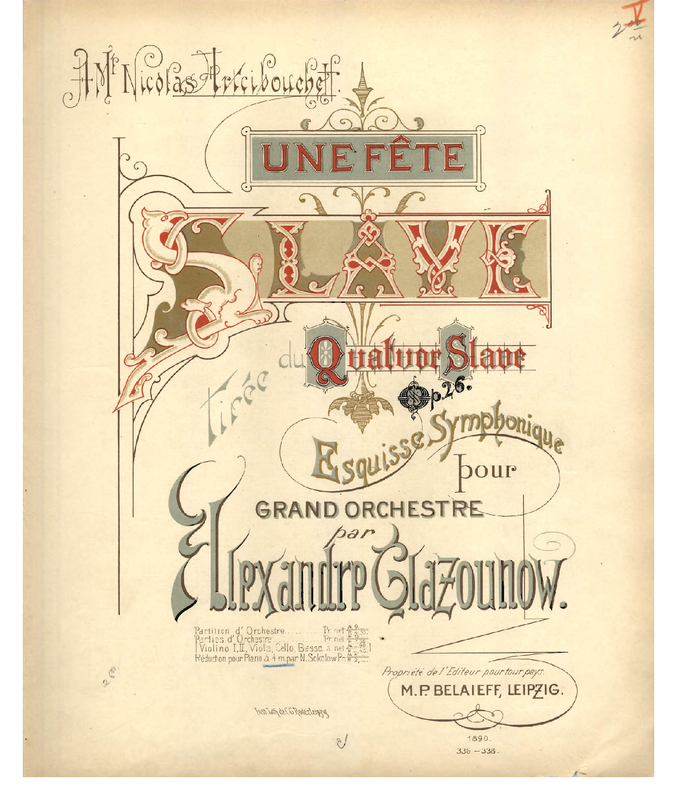 A Mr Nicolas Artciboucheff.
UNE FÊTE
SLAVE
Tirée du Quatuor Slave
Op. 26.
Esquisse Symphonique
pour
GRAND ORCHESTRE
par
Alexandre Glazounow.
Partition d'Orchestre Pr. net
Parties d'Orchestre Pr. net
Violino I, II, Viola, Cello, Basso. à net
Réduction pour Piano à 4 m. par N. Sokolow Pr.
Propriété de l'Editeur pour tour pays.
M. P. BELAIEFF, LEIPZIG.
1890.
336 – 338.
V